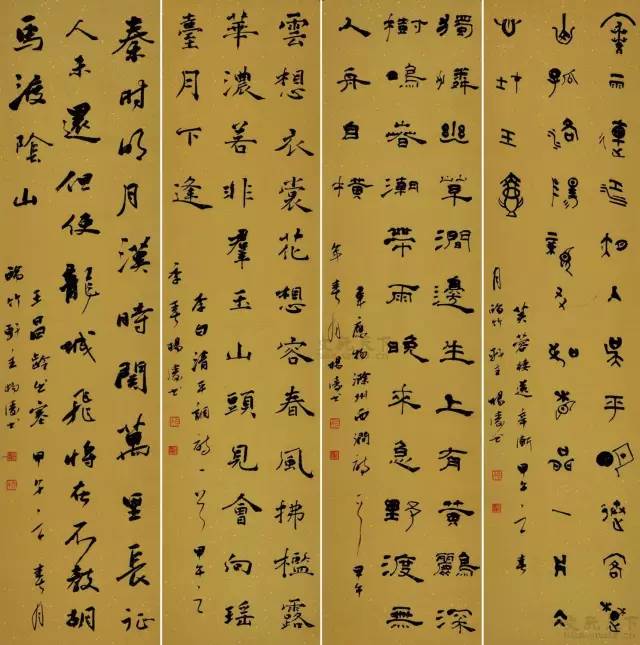 寒雨連江夜入吳平明送客楚
山孤洛陽親友如相問一片冰
心在玉壺
芙蓉樓送辛漸 甲午之春
月 竹軒主楊濤书
獨憐幽草澗邊生上有黃鸝深
樹鳴春潮帶雨晚來急野渡無
人舟自橫
韋應物滁州西澗詩一首 甲午
年春月楊濤书
雲想衣裳花想容春風拂檻露
華濃若非羣玉山頭見會向瑶
臺月下逢
李白清平調詩一首 甲午之
季春楊濤书
秦时明月漢時関萬里長征
人未還但使龍城飛將在不教胡
馬渡陰山
王昌齡出塞 甲午之春月
竹軒主楊濤书